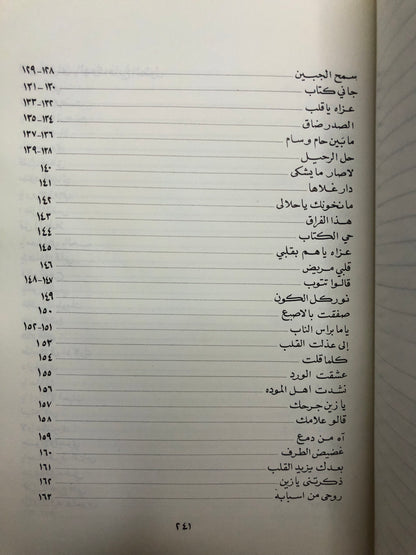 سمح الجبين ١٢٨-١٢٩
جاني كتاب ١٣٠-١٣١
عزاه ياقلب ١٣٢-١٣٣
الصدر ضاق ١٣٤-١٣٥
مابين حام وسام ١٣٦-١٣٧
حل الرحيل ١٣٨-١٣٩
لاصار مايشكى ١٤٠
دار غلاها ١٤١
مانخونك ياحلالى ١٤٢
هذا الفراق ١٤٣
حي الكتاب ١٤٤
عزاه ياهم بقلبي ١٤٥
قلبي مريض ١٤٦
قالوا تتوب ١٤٧-١٤٨
نور كل الكون ١٤٩
صفقت بالاصبع ١٥٠
ياما براس الناب ١٥١-١٥٢
إلى عذلت القلب ١٥٣
كلما قلت ١٥٤
عشقت الورد ١٥٥
نشدت اهل الموده ١٥٦
يازين جرحك ١٥٧
قالو علامك ١٥٨
آه من دمع ١٥٩
غضيض الطرف ١٦٠
بعدك يزيد القلب ١٦١
ذكرتنى يازين ١٦٢
روحي من اسبابه ١٦٣
٢٤١